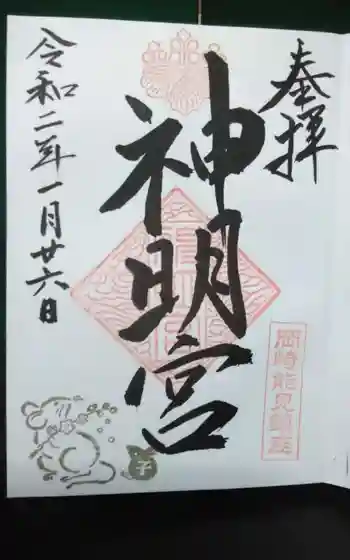 奉拝
神明宮
令和二年一月廿六日
岡崎能見鎮座
子